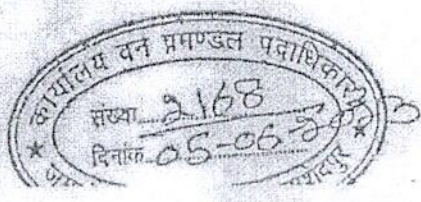 कार्यालय वन प्रमण्डल पदाधिकारी
संख्या 2168
दिनांक 05-06-2023